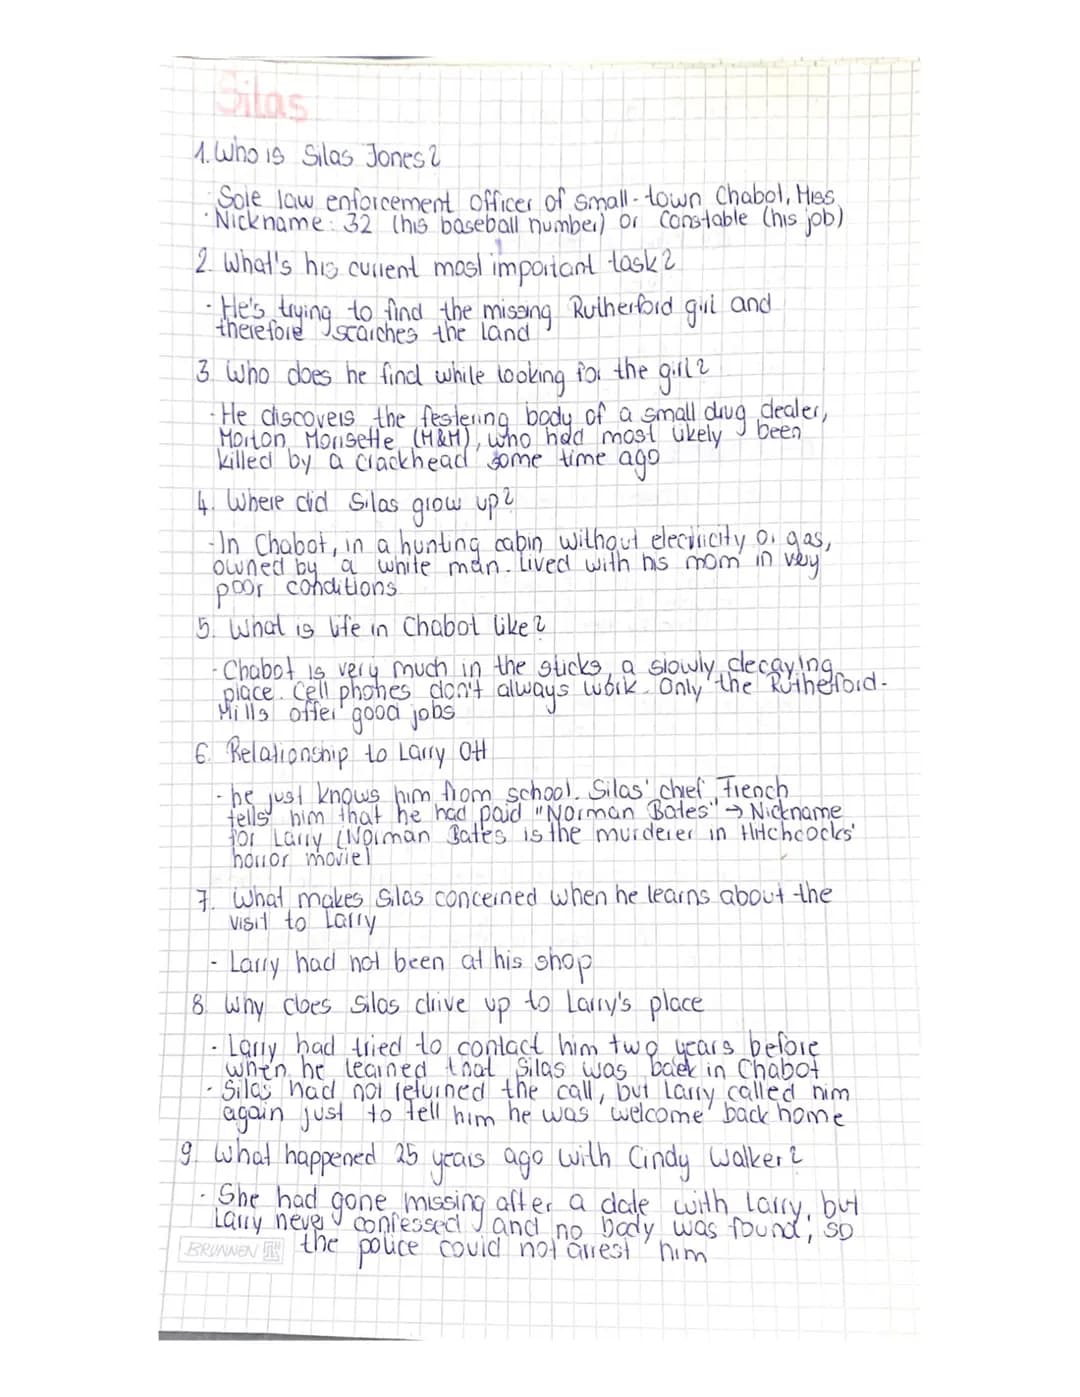 Silas
1. Who is Silas Jones?
· Sole law enforcement officer of small-town Chabol, Miss.
· Nickname: 32 (his baseball number) or Constable (his job)
2. What's his current most important task?
- He's trying to find the missing Rutherford girl and
therefore searches the land
3. Who does he find while looking for the girl?
- He discovers the festering body of a small drug dealer,
Morton Morisette (M&M), who had most likely been
killed by a crackhead some time ago
4. Where did Silas grow up?
- In Chabot, in a hunting cabin without electricity or gas,
owned by a white man. Lived with his mom in very
poor conditions
5. What is life in Chabot like?
- Chabot is very much in the sticks, a slowly decaying
place. Cell phones don't always work. Only the Rutherford-
Mills offer good jobs
6. Relationship to Larry Ott
- he just knows him from school. Silas' chief French
tells him that he had paid "Norman Bates" → Nickname
for Larry (Norman Bates is the murderer in Hitchcocks'
horror movie)
7. What makes Silas concerned when he learns about the
visit to Larry
- Larry had not been at his shop
8. Why does Silas drive up to Larry's place
- Larry had tried to contact him two years before
when he learned that Silas was back in Chabot
- Silas had not returned the call, but Larry called him
again just to tell him he was welcome back home
9. What happened 25 years ago with Cindy Walker?
- She had gone missing after a date with Larry, but
Larry never confessed and no body was found, so
the police could not arrest him
BRUNNEN